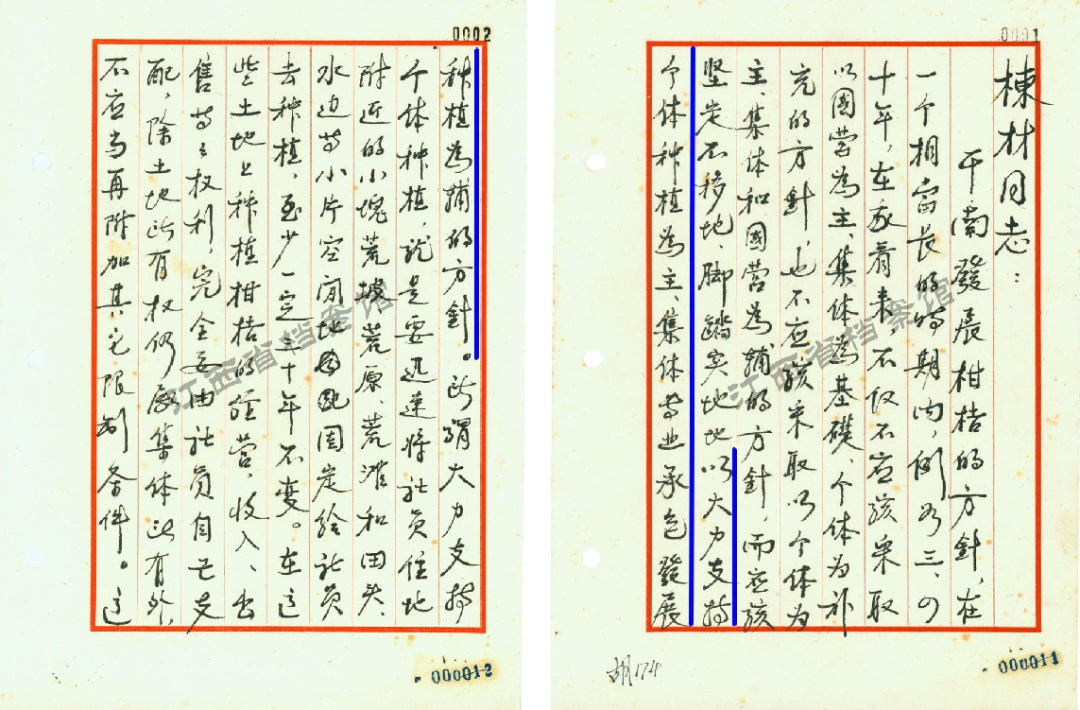 0001
棟材同志：
干南發展柑桔的方針，在
一个相當长的時期内，例如三、四
十年，在我看来，不仅不应该采取
以國营為主、集体為基礎、个体为补
充的方針，也不应该采取以个体为
主、集体和國营為輔的方針，而应该
坚定不移地、脚踏实地地以大力支持
个体种植為主、集体专业承包發展
胡174
000011
江西省档案馆
0002
种植為輔的方針。所謂大力支持
个体种植，就是要迅速将社员住地
附近的小塊荒坡荒原、荒滩和田头、
水边等小片空闲地固定给社员
去种植，至少一定三十年不变。在这
些土地上种植柑桔的经营、收入、出
售等々权利，完全要由社员自己支
配，除土地所有权仍屬集体所有外，
不应当再附加其它限制条件。这
000012
江西省档案馆